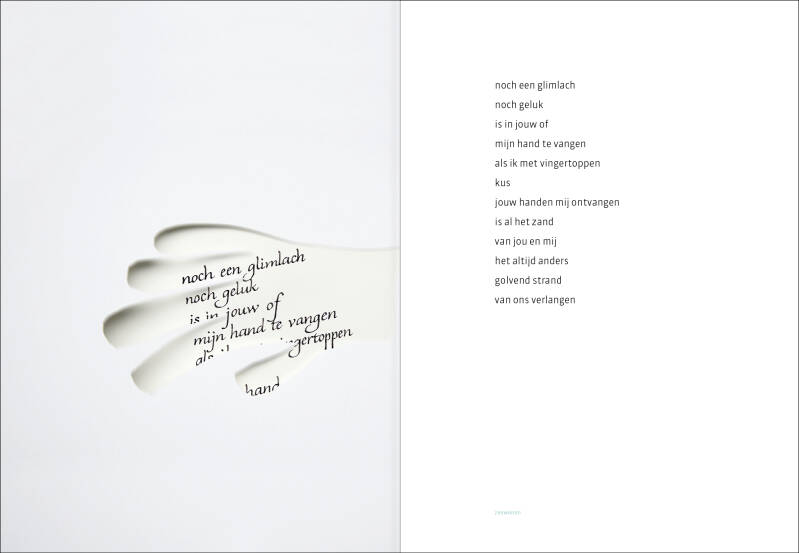 noch een glimlach
noch geluk
is in jouw of
mijn hand te vangen
vingertoppen
hand
noch een glimlach
noch geluk
is in jouw of
mijn hand te vangen
als ik met vingertoppen
kus
jouw handen mij ontvangen
is al het zand
van jou en mij
het altijd anders
golvend strand
van ons verlangen